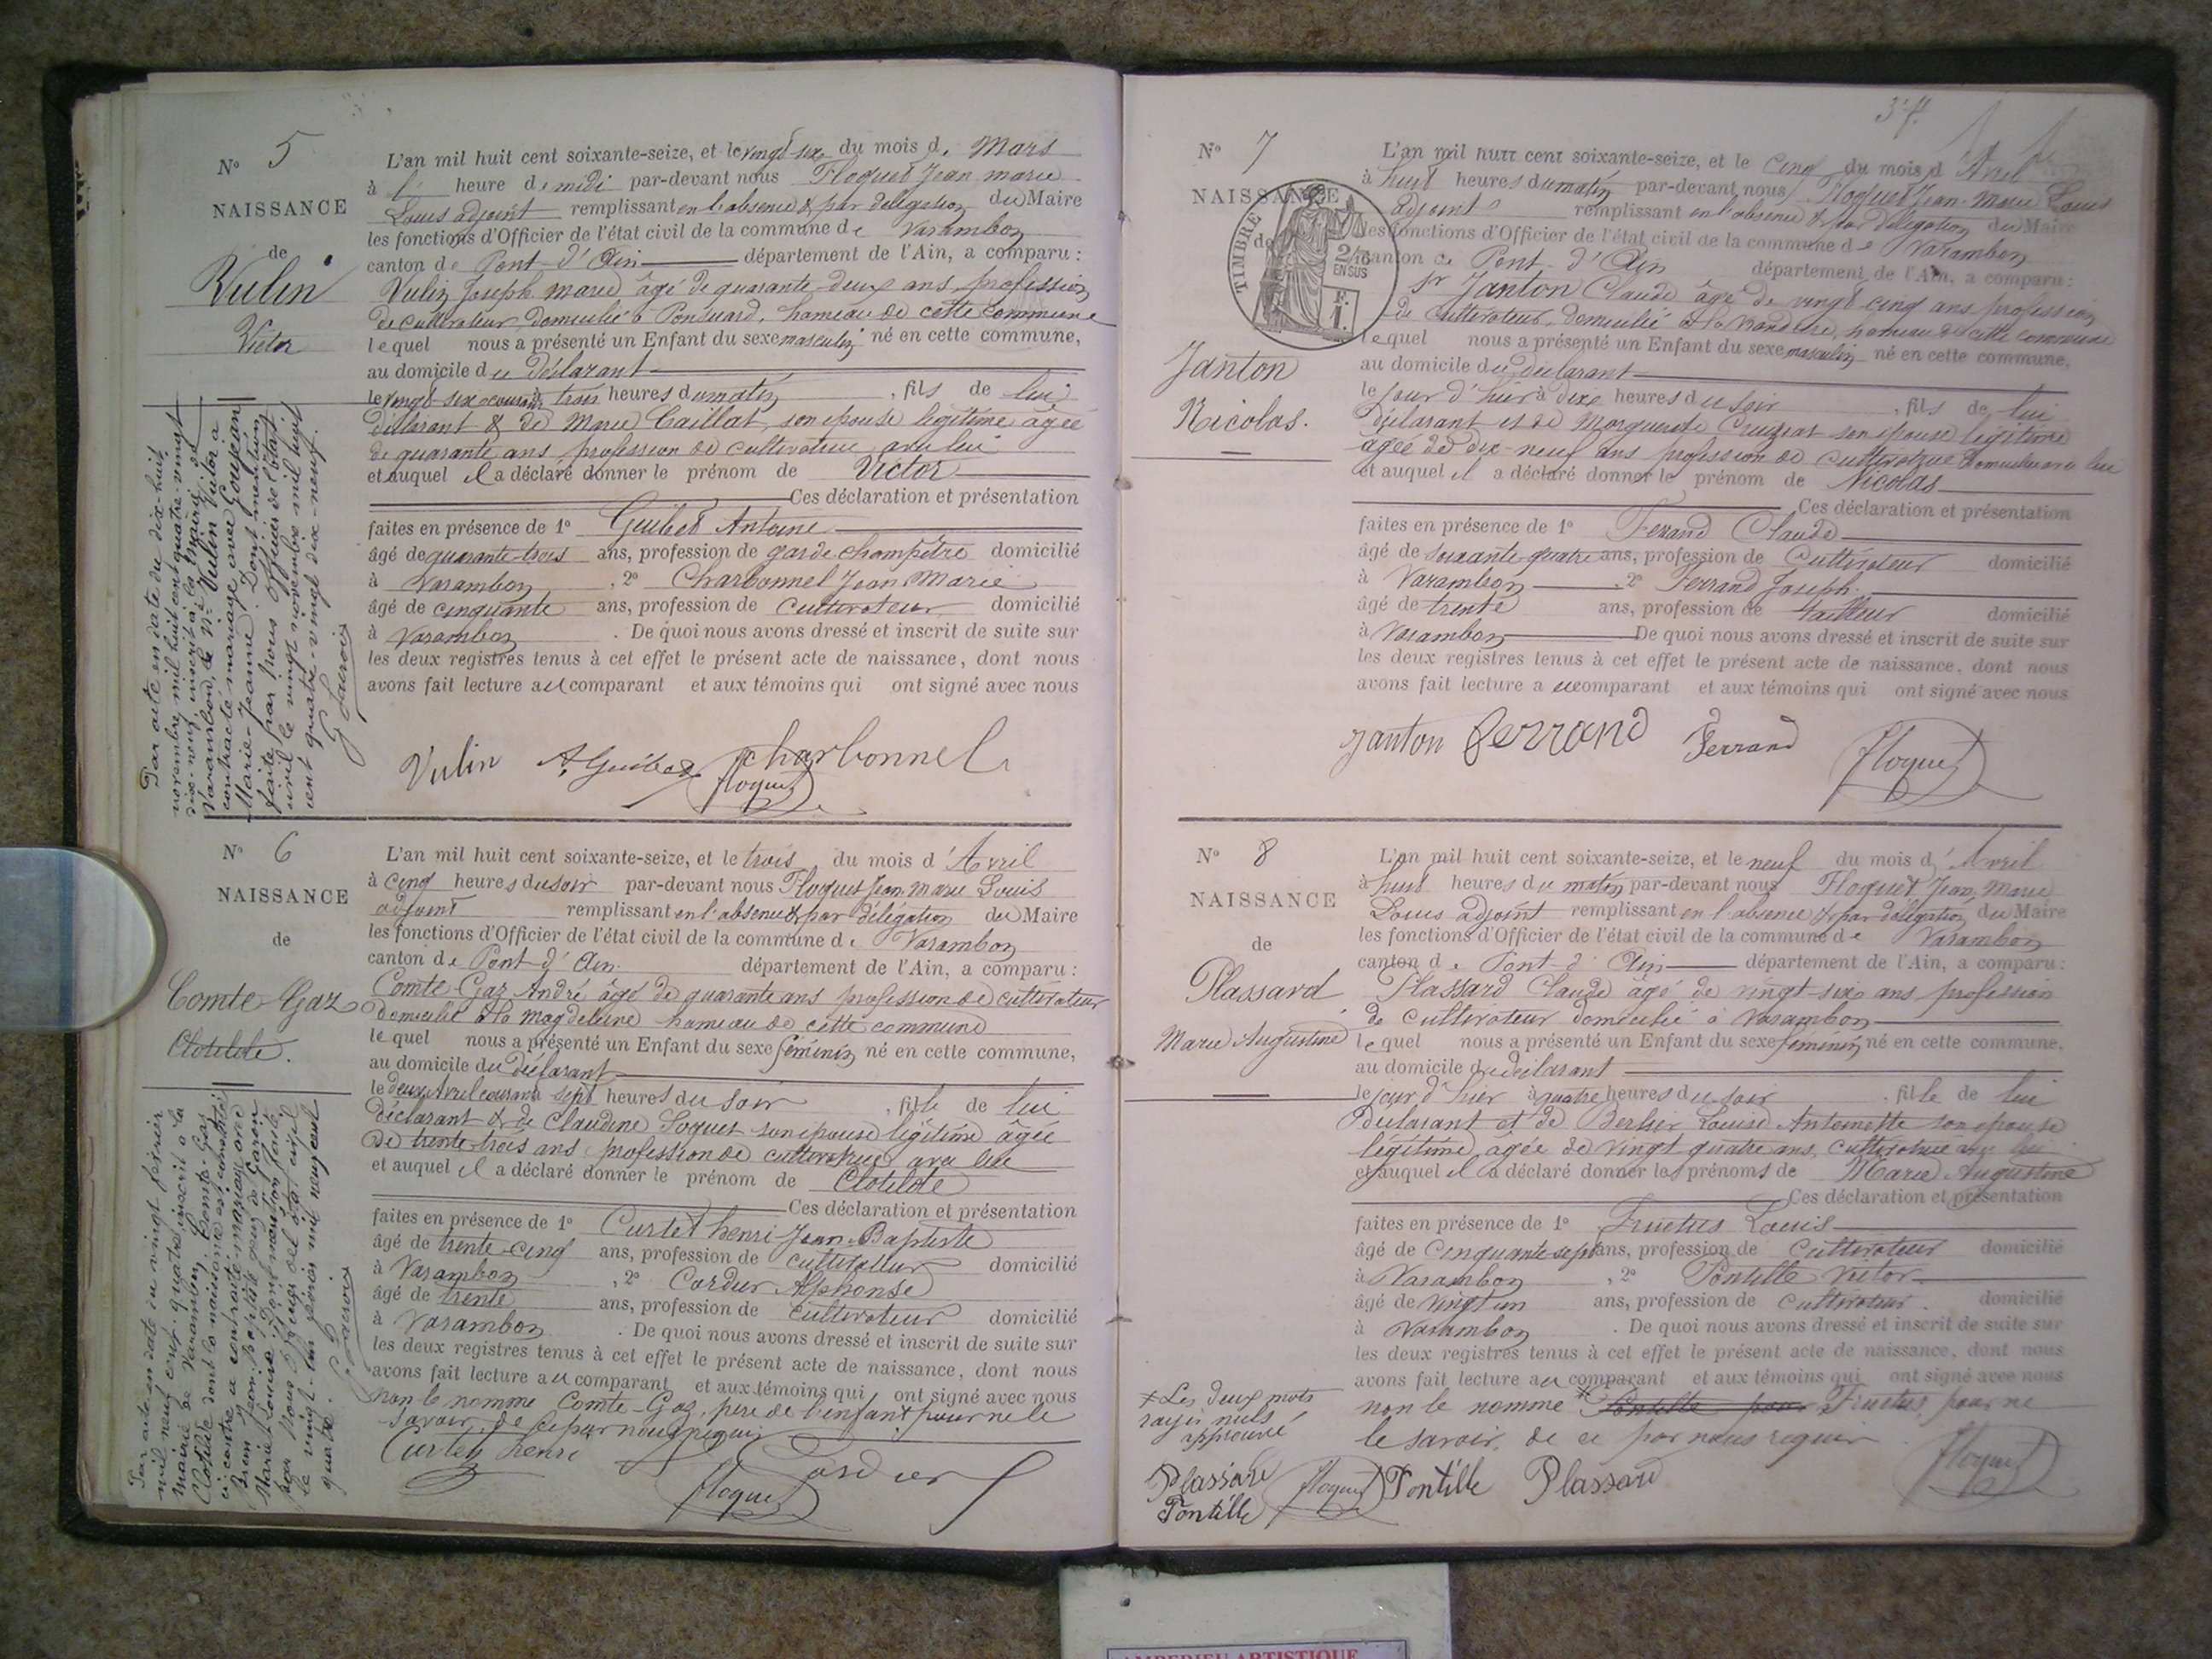 N° 5
NAISSANCE
de
Vulin
Victor
L'an mil huit cent soixante-seize, et le vingt six du mois de Mars
à l' heure de midi par-devant nous Floquet Jean marie
Louis adjoint remplissant en l'absence & par délégation du Maire
les fonctions d'Officier de l'état civil de la commune de Varambon
canton de Pont d'Ain département de l'Ain, a comparu :
Vulin Joseph marie âgé de quarante deux ans profession
de cultivateur domicilié à Ponsuard, hameau de cette commune
lequel nous a présenté un Enfant du sexe masculin né en cette commune,
au domicile du déclarant
le vingt-six courant à trois heures du matin, fils de lui
déclarant & de Marie Caillat, son épouse légitime âgée
de quarante ans profession de cultivatrice avec lui
et auquel il a déclaré donner le prénom de Victor
Ces déclaration et présentation
faites en présence de 1° Guibet Antoine
âgé de quarante-trois ans, profession de garde champêtre domicilié
à Varambon, 2° Charbonnel Jean Marie
âgé de cinquante ans, profession de cultivateur domicilié
à Varambon. De quoi nous avons dressé et inscrit de suite sur
les deux registres tenus à cet effet le présent acte de naissance, dont nous
avons fait lecture au comparant et aux témoins qui ont signé avec nous
Vulin A. Guibet Charbonnel
Floquet
Par acte en date du dix-huit
novembre mil huit cent quatre-vingt
dix-neuf, inscrit à la Mairie de
Varambon, le né Vulin Victor a
contracté mariage avec Goujean
Marie-Jeanne. Dont mention
faite par nous Officier de l'état
civil le vingt novembre mil huit
cent quatre-vingt dix-neuf.
N° 6
NAISSANCE
de
Comte-Gaz
Clotilde.
L'an mil huit cent soixante-seize, et le trois du mois d'Avril
à cinq heures du soir par-devant nous Floquet Jean Marie Louis
adjoint remplissant en l'absence & par délégation du Maire
les fonctions d'Officier de l'état civil de la commune de Varambon
canton de Pont d'Ain département de l'Ain, a comparu :
Comte-Gaz André âgé de quarante ans profession de cultivateur
domicilié à la Magdeleine hameau de cette commune
lequel nous a présenté un Enfant du sexe féminin né en cette commune,
au domicile du déclarant
le deux Avril courant à sept heures du soir, fille de lui
déclarant & de Claudine Loquet son épouse légitime âgée
de trente-trois ans profession de cultivatrice avec lui
et auquel il a déclaré donner le prénom de Clotilde
Ces déclaration et présentation
faites en présence de 1° Curtet henri Jean-Baptiste
âgé de trente-cinq ans, profession de cultivateur domicilié
à Varambon, 2° Cordier Alphonse
âgé de trente ans, profession de cultivateur domicilié
à Varambon. De quoi nous avons dressé et inscrit de suite sur
les deux registres tenus à cet effet le présent acte de naissance, dont nous
avons fait lecture au comparant et aux témoins qui ont signé avec nous
non le nommé Comte-Gaz, père de l'enfant pour ne le
savoir, de ce par nous requis
Curtet henri Cordier
Floquet
Par acte en date du vingt février
mil neuf cent quatre inscrit à la
mairie de Varambon, Comte-Gaz
Clotilde dont la naissance est constatée
ci contre a contracté mariage avec
Jean-Baptiste
Marie Louis. Dont mention faite
par nous Officier de l'état civil
le vingt-un février mil neuf cent
quatre.
37.
N° 7
NAISSANCE
de
Janton
Nicolas.
TIMBRE
2/10
EN SUS
F.
1.
L'an mil huit cent soixante-seize, et le cinq du mois d'Avril
à huit heures du matin par-devant nous Floquet Jean Marie Louis
adjoint remplissant en l'absence & par délégation du Maire
les fonctions d'Officier de l'état civil de la commune de Varambon
canton de Pont d'Ain département de l'Ain, a comparu :
Sr Janton Claude âgé de vingt cinq ans profession
de cultivateur, domicilié à la hameau de cette commune
lequel nous a présenté un Enfant du sexe masculin né en cette commune,
au domicile du déclarant
le jour d'hier à dix heures du soir, fils de lui
déclarant et de Marguerite Cruziat son épouse légitime
âgée de dix-neuf ans profession de cultivatrice domiciliée avec lui
et auquel il a déclaré donner le prénom de Nicolas
Ces déclaration et présentation
faites en présence de 1° Ferrand Claude
âgé de soixante-quatre ans, profession de cultivateur domicilié
à Varambon, 2° Ferrand Joseph.
âgé de trente ans, profession de tailleur domicilié
à Varambon De quoi nous avons dressé et inscrit de suite sur
les deux registres tenus à cet effet le présent acte de naissance, dont nous
avons fait lecture au comparant et aux témoins qui ont signé avec nous
Janton Ferrand Ferrand Floquet
N° 8
NAISSANCE
de
Plassard
Marie Augustine
L'an mil huit cent soixante-seize, et le neuf du mois d'Avril
à huit heures du matin par-devant nous Floquet Jean Marie
Louis adjoint remplissant en l'absence & par délégation du Maire
les fonctions d'Officier de l'état civil de la commune de Varambon
canton de Pont d'Ain département de l'Ain, a comparu :
Plassard Claude âgé de vingt-six ans profession
de cultivateur domicilié à Varambon
lequel nous a présenté un Enfant du sexe féminin né en cette commune,
au domicile du déclarant
le jour d'hier à quatre heures du soir, fille de lui
déclarant et de Berlier Louise Antoinette son épouse
légitime âgée de vingt quatre ans, cultivatrice avec lui
et auquel il a déclaré donner les prénoms de Marie Augustine
Ces déclaration et présentation
faites en présence de 1° Fructus Louis
âgé de cinquante-sept ans, profession de cultivateur domicilié
à Varambon, 2° Pontille Victor
âgé de vingt un ans, profession de cultivateur. domicilié
à Varambon. De quoi nous avons dressé et inscrit de suite sur
les deux registres tenus à cet effet le présent acte de naissance, dont nous
avons fait lecture au comparant et aux témoins qui ont signé avec nous
non le nommé * Pontille pour Fructus, pour ne
le savoir, de ce par nous requis
* Les deux mots
rayés nuls
approuvé
Plassard Floquet Pontille Plassard Floquet
Pontille
AMBERIEU ARTISTIQUE